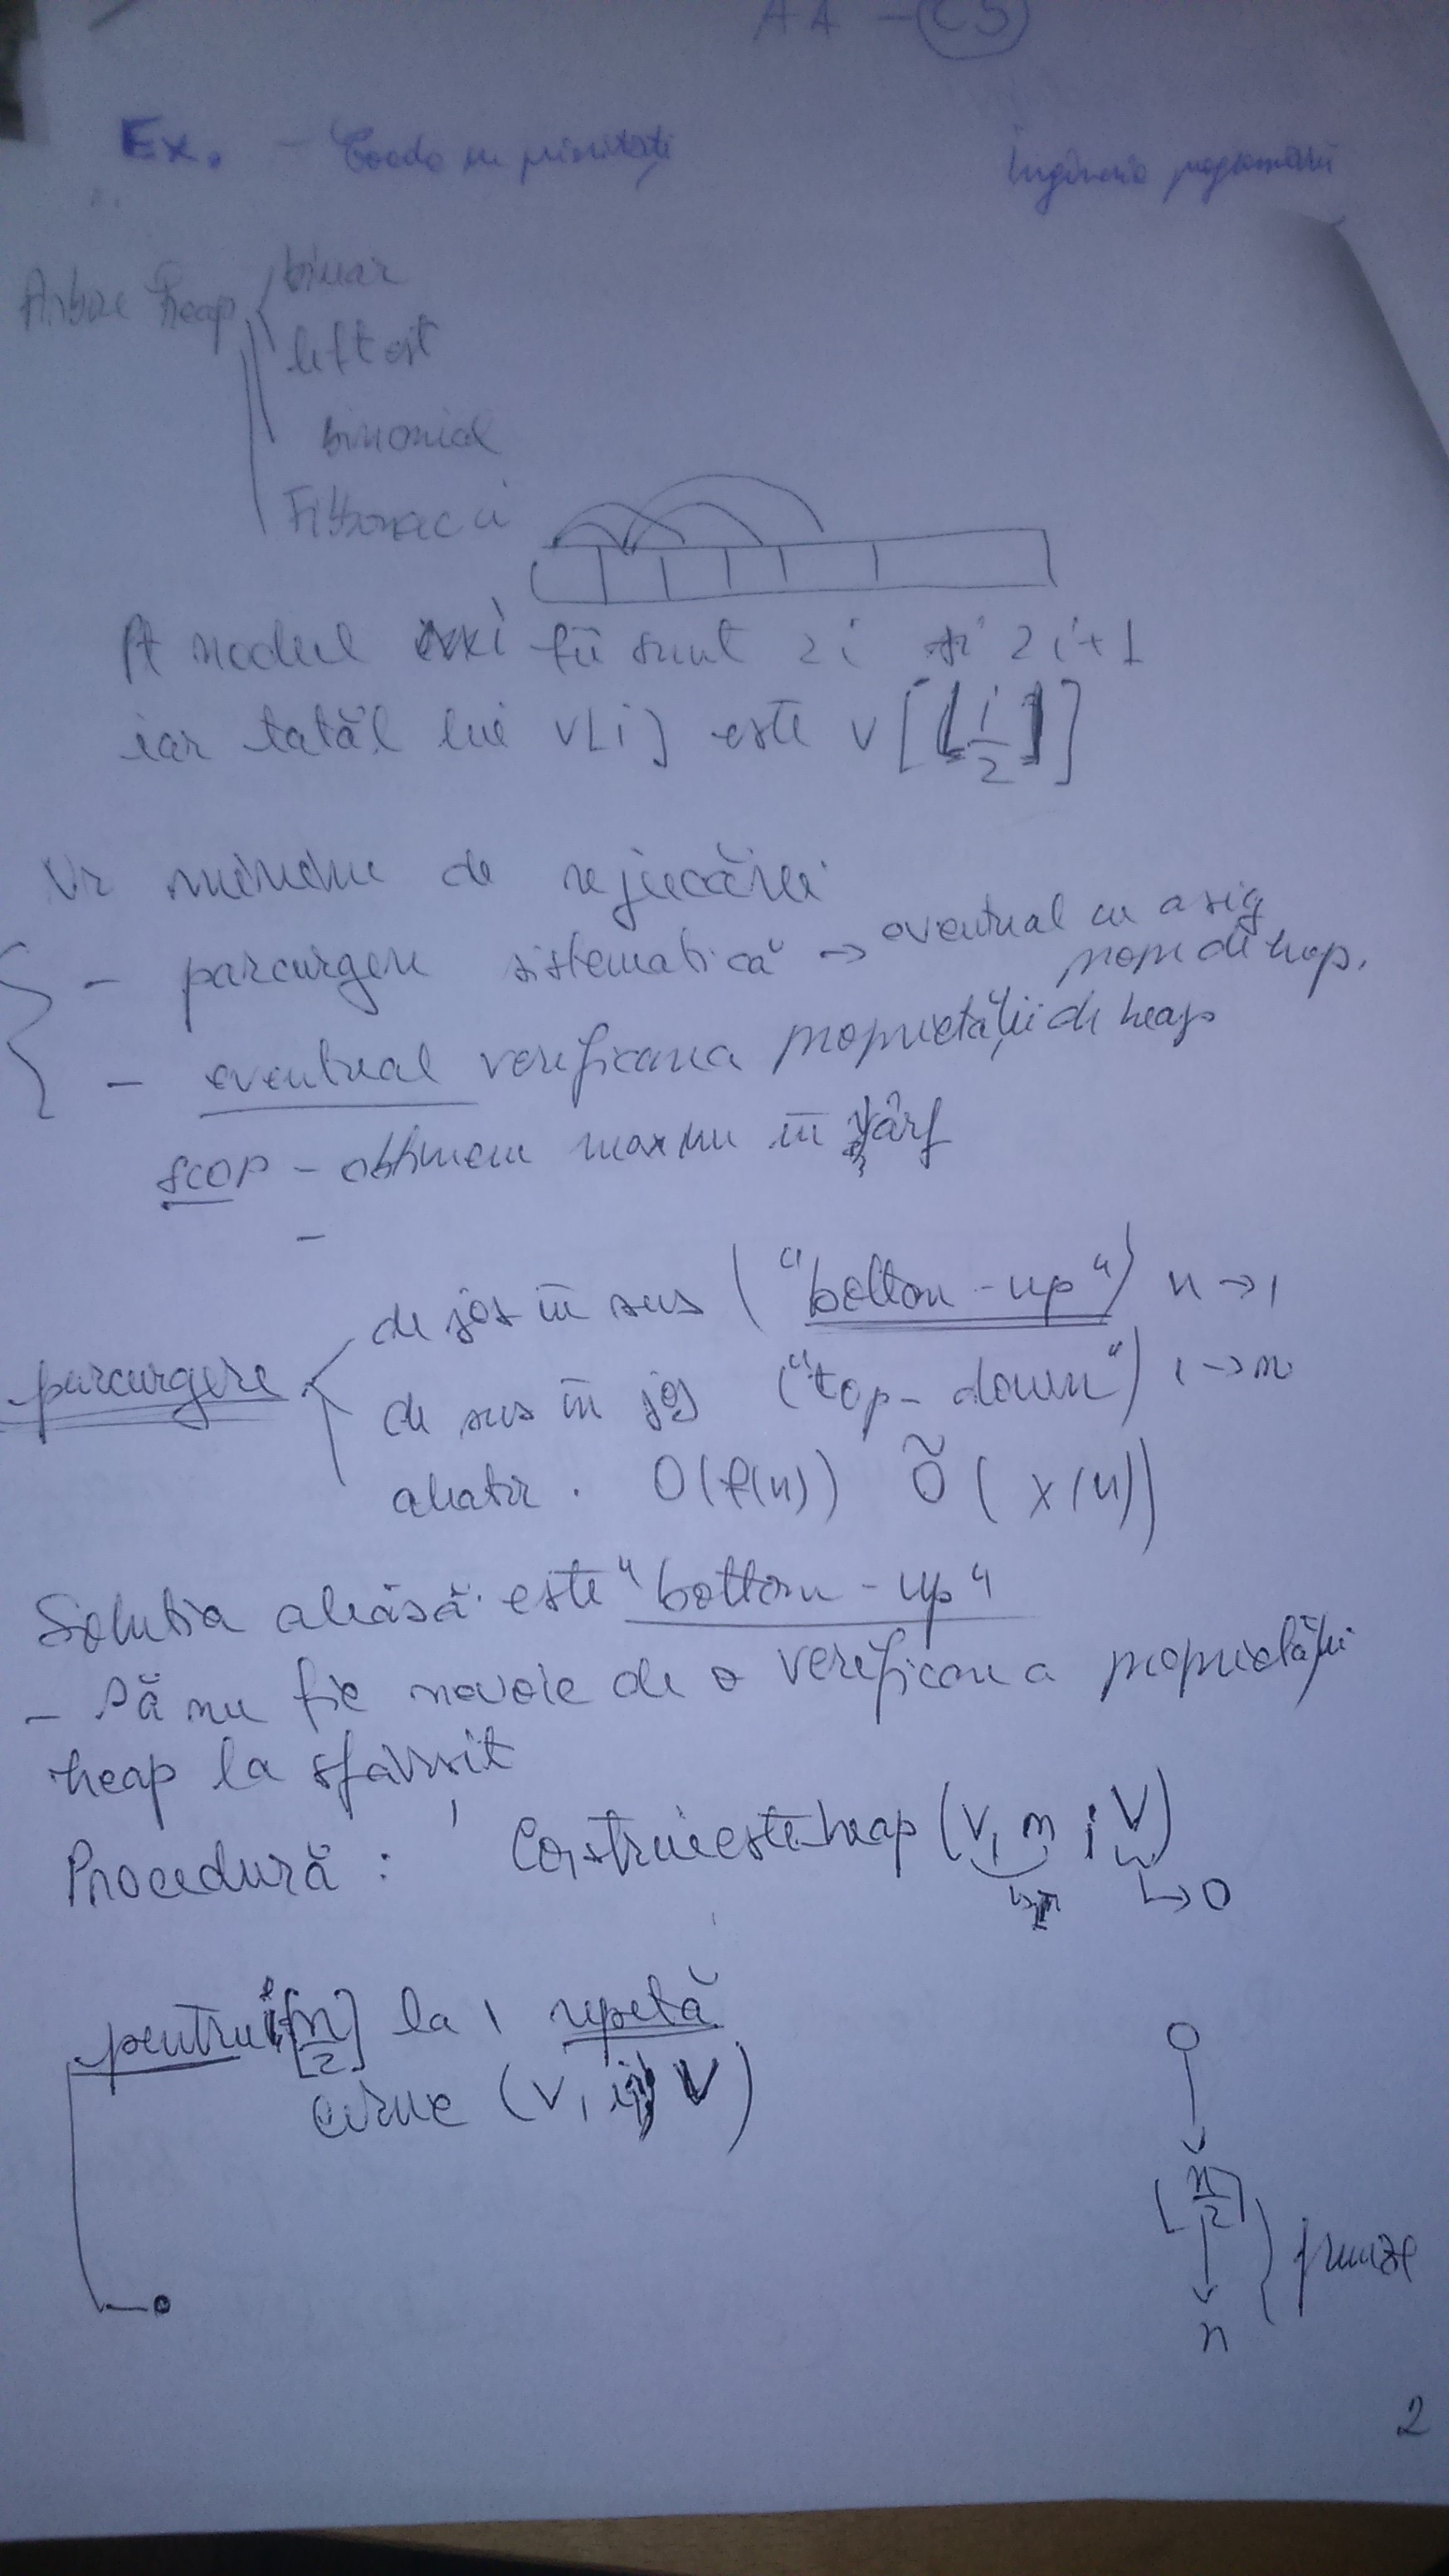 AA - C5
Ex. - Coada cu priorități
Ingineria programării
Arbore heap
binar
leftist
binomial
Fibbonacci
Pt nodul i fii sunt 2i și 2i+1
iar tatăl lui v[i] este v[⌊i/2⌋]
Nr minim de
- parcurgere sistematică → eventual cu asig
prop de heap.
- eventual verificarea proprietății de heap
scop - obținem maxim în vârf
-
parcurgere
de jos în sus ("bottom-up") n → 1
de sus în jos ("top-down") 1 → n
aleator. O(f(n)) Õ(x(n))
Soluția aleasă este "bottom-up"
- să nu fie nevoie de o verificare a proprietății
heap la sfârșit
Procedură: Construieste-heap (V, n ; V)
↳ I ↳ O
pentru i [n/2] la 1 repetă
cerne (V, i, V)
[n/2]
n
frunze
2